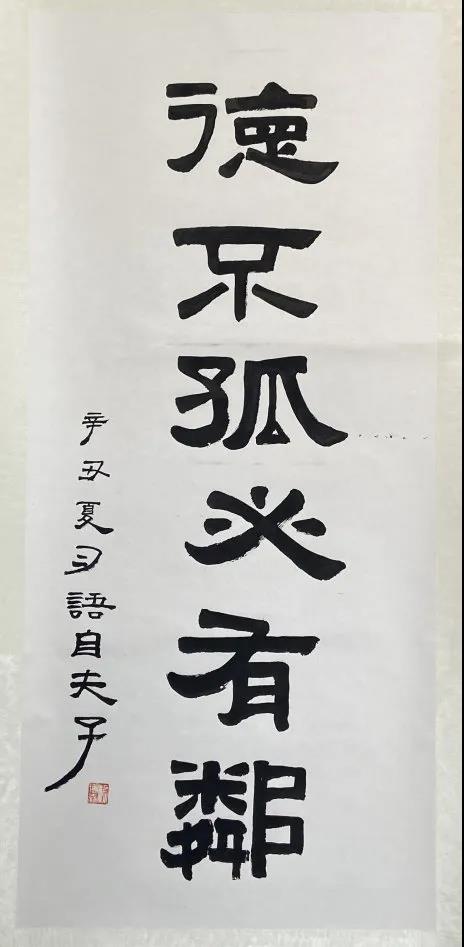 德不孤必有鄰
辛丑夏夕語自夫子